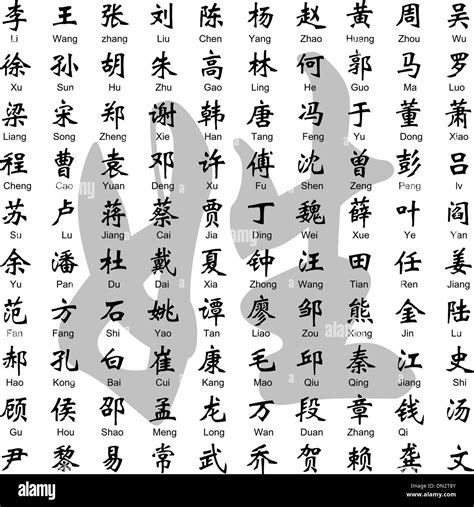 李 王 张 刘 陈 杨 赵 黄 周 吴
Li Wang zhang Liu Chen Yang Zhao Huang Zhou Wu
徐 孙 胡 朱 高 林 何 郭 马 罗
Xu Sun Hu Zhu Gao Ling He Guo Ma Luo
梁 宋 郑 谢 韩 唐 冯 于 董 萧
Liang Song Zheng Xie Han Tang Feng Yu Dong Xiao
程 曹 袁 邓 许 傅 沈 曾 彭 吕
Cheng Cao Yuan Deng Xu Fu Shen Zeng Peng lv
苏 卢 蒋 蔡 贾 丁 魏 薛 叶 阎
Su Lu Jiang Cai Jia Ding Wei Xue Ye Yan
余 潘 杜 戴 夏 钟 汪 田 任 姜
Yu Pan Du Dai Xia Zhong Wang Tian Ren Jiang
范 方 石 姚 谭 廖 邹 熊 金 陆
Fan Fang Shi Yao Tan Liao Zou Xiong Jin Lu
郝 孔 白 崔 康 毛 邱 秦 江 史
Hao Kong Bai Cui Kang Mao Qiu Qing Jiang Shi
顾 侯 邵 孟 龙 万 段 章 钱 汤
Gu Hou Shao Meng Long Wan Duan Zhang Qi
尹 黎 易 常 武 乔 贺 赖 龚 文
姓
alamy stock photo
DN2T8Y